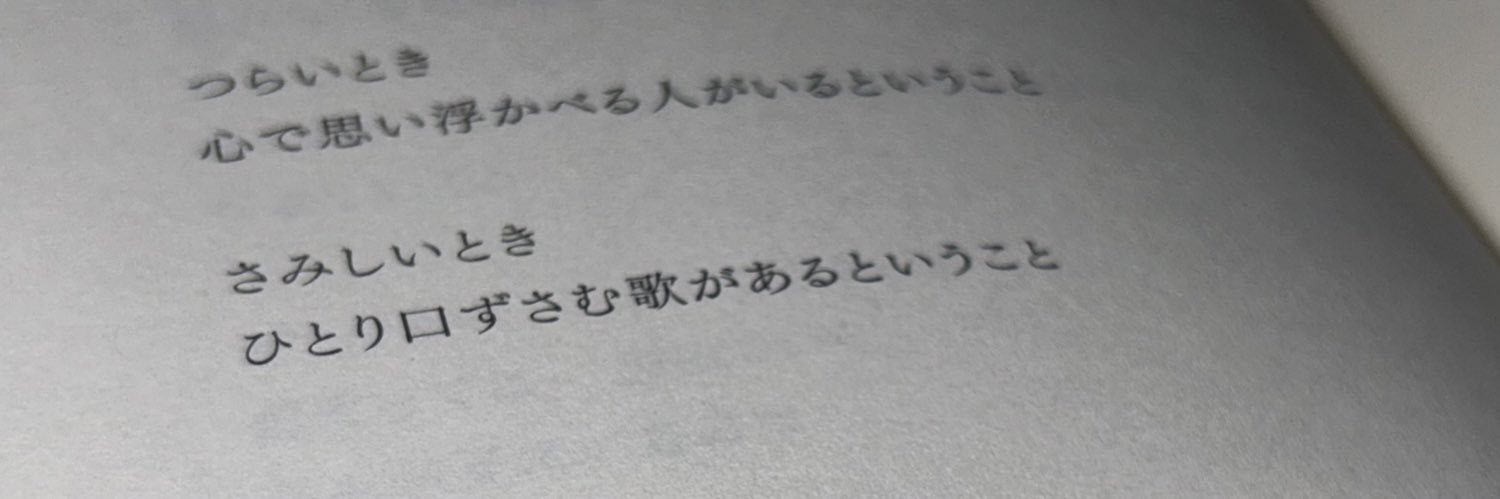 つらいとき
心で思い浮かべる人がいるということ
さみしいとき
ひとり口ずさむ歌があるということ